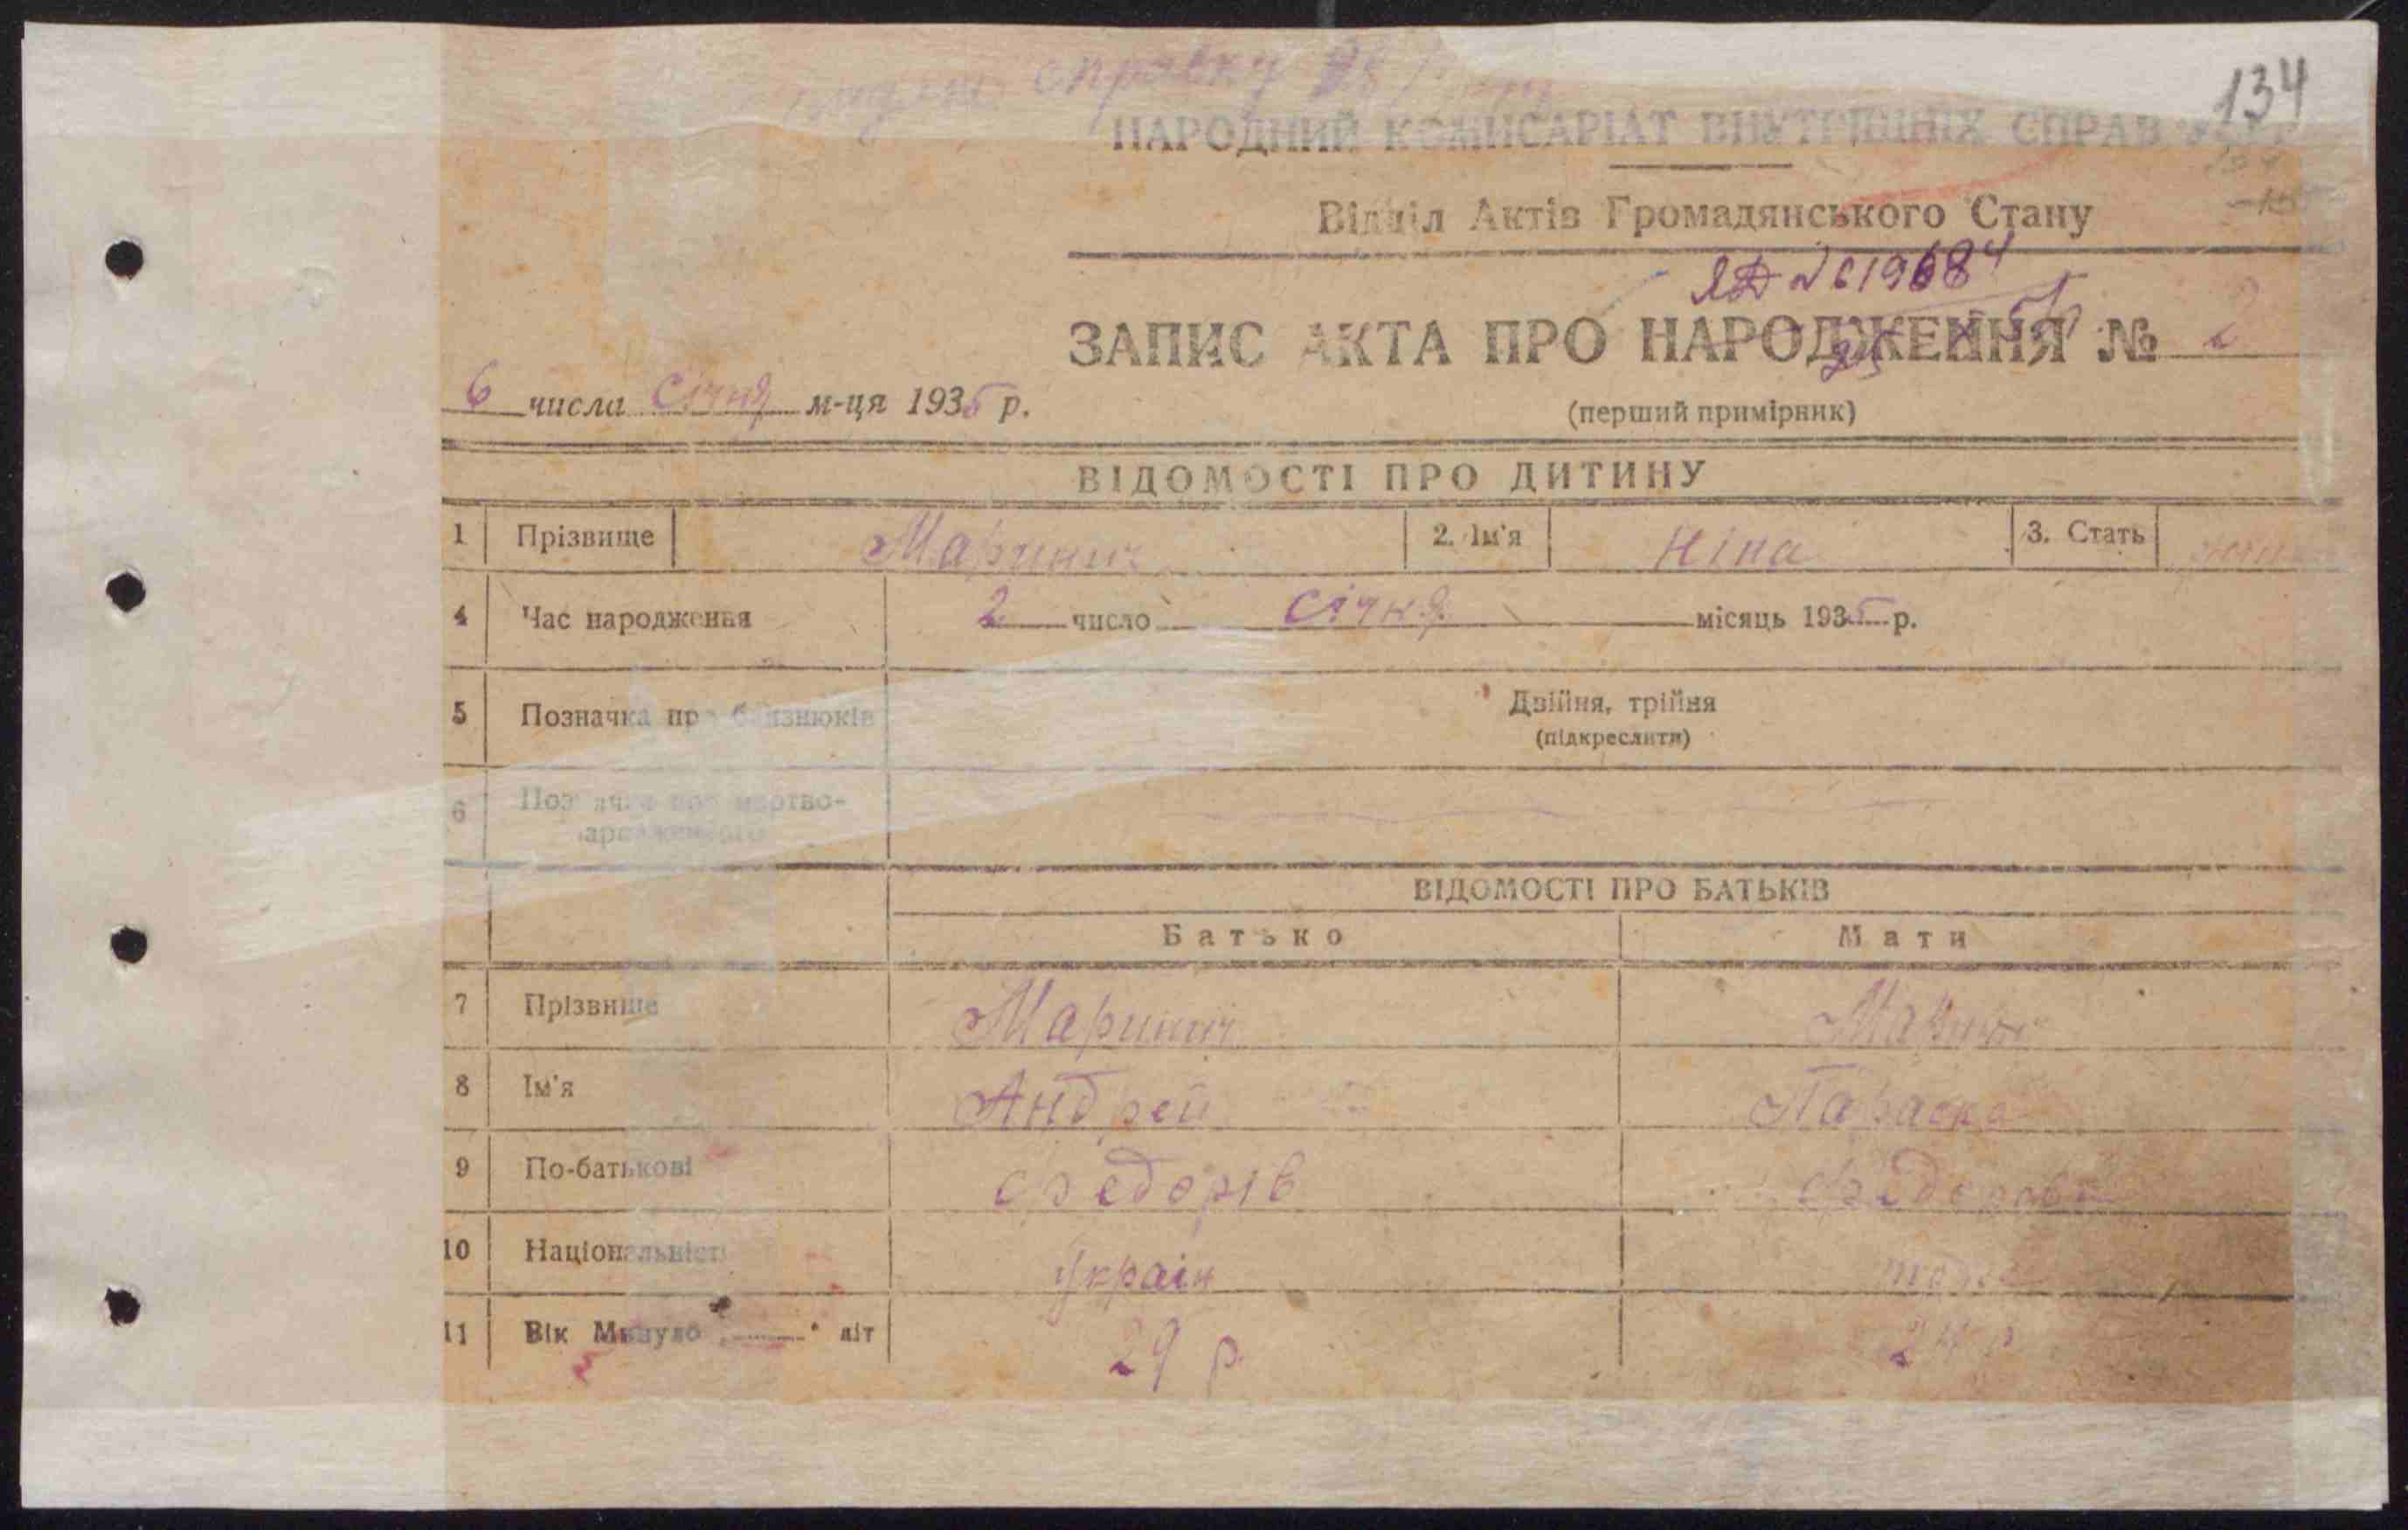 134
справку
НАРОДНИЙ КОМІСАРІАТ ВНУТРІШНІХ СПРАВ
Відділ Актів Громадянського Стану
ЯД № 619684
ЗАПИС АКТА ПРО НАРОДЖЕННЯ № 2
6 числа Січня м-ця 1935 р.
(перший примірник)
ВІДОМОСТІ ПРО ДИТИНУ
1 Прізвище Маринич 2. Ім'я Ніна 3. Стать жін
4 Час народження 2 число Січня місяць 1935 р.
5 Позначка про близнюків Двійня, трійня
(підкреслити)
6 Позначка про мертво-
народженого
ВІДОМОСТІ ПРО БАТЬКІВ
Батько Мати
7 Прізвище Маринич Маринич
8 Ім'я Андрей Параска
9 По-батькові Федорів Федоровн
10 Національність Україн тоже
11 Вік Минуло "——" літ 29 р. 24 р